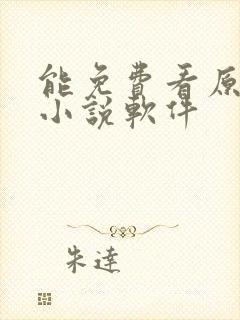 能免費看原
小說軟件
朱達